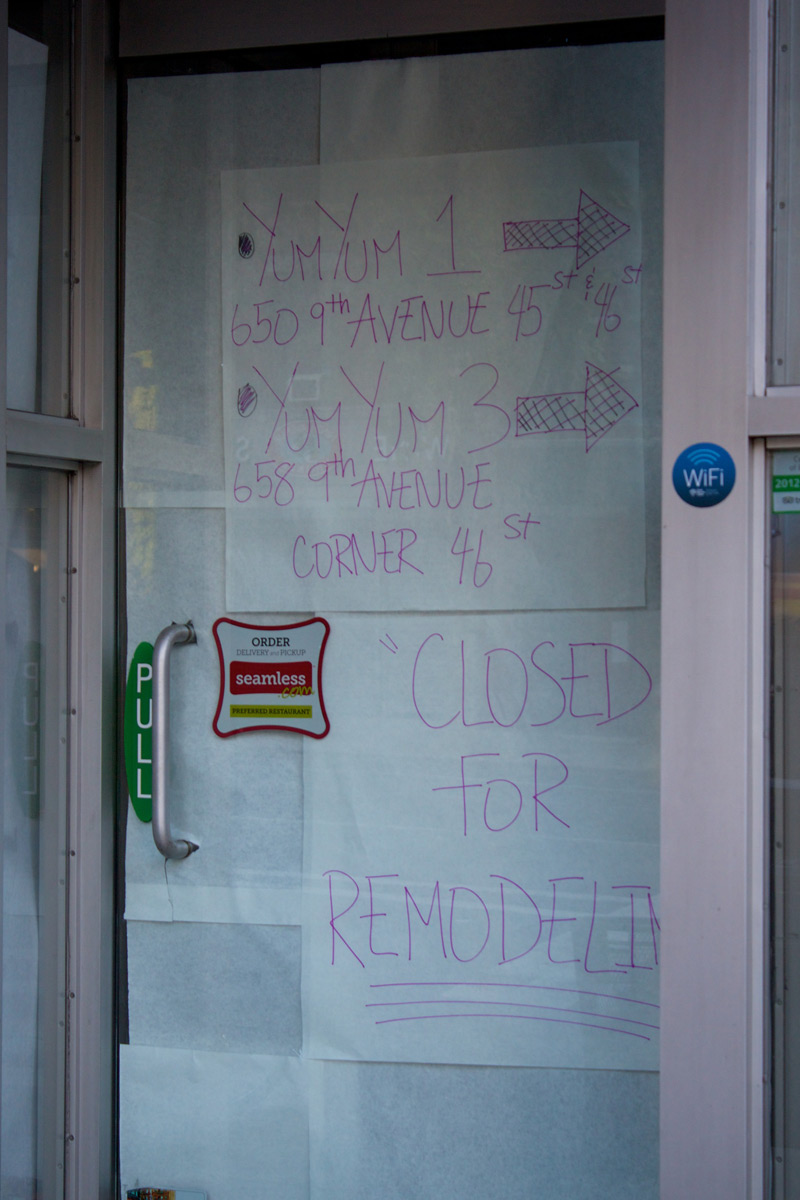 YUM YUM 1
650 9th AVENUE 45st & 46st
YUM YUM 3
658 9th AVENUE
CORNER 46st
"CLOSED
FOR
REMODELIN
PULL
ORDER
DELIVERY and PICKUP
seamless
.com
PREFERRED RESTAURANT
WiFi
2012